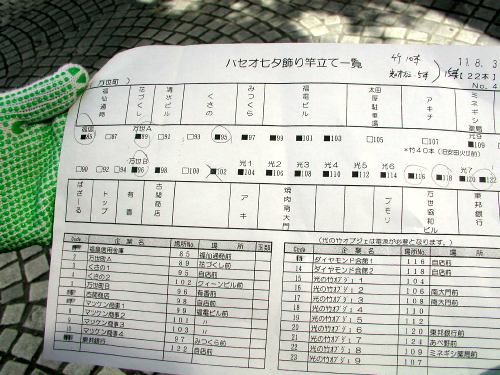 ハセオ七夕飾り竿立て一覧
竹10本
光のオブジェ5本
15本
【22本】
11.8.3
No. 4
万世町
福仙通商
花づくし
清水ビル
くさの
みつくら
福電ビル
太田屋駐車場
アキチ
ミネギシ薬局
福信
万世A
■85 □87 ■89 □91 □93 ■95 ■97 ■99 ■101 ■103 □105 □107 ■109
*竹40本(旧安田火災前)
万世B
光1 光2 光3 光4 光5 光6 光7 光8
□90 □92 □94 ■96 ■98 □100 ■102 ■104 ■106 ■108 ■110 ■112 □114 ■116 ■118 ■120 ■122
ばざーる
トップ
有喜
古関商店
アキ
焼肉南大門
フモリ
万世協和ビル
東邦銀行
(光の竹オブジェは電源が必要となります。)
Code 企業名 場所No. 場所 玉類
福島信用金庫 85 福仙通商前
2 万世町A 89 花づくし前
くさの1 95 自店前
くさの2 102 クィーンビル前
万世町B 96 有喜前
古関商店 98 自店前
マツケン商事1 99 福電ビル前
マツケン商事2 101 〃
マツケン商事3 103 〃
マツケン商事4 97 みつくら前
東邦銀行 122 自店前
Code 企業名 場所No. 場所
ダイヤモンド会館1 116 自店前
14 ダイヤモンド会館2 118 自店前
15 光の竹オブジェ1 104
16 光の竹オブジェ2 106 南大門前
17 光の竹オブジェ3 108 南大門前
18 光の竹オブジェ4 110
19 光の竹オブジェ5 112
20 光の竹オブジェ6 120 東邦銀行前
21 光の竹オブジェ7 124 あべ野前
22 光の竹オブジェ8 109 ミネギシ薬局前
23 光の竹オブジェ9 107